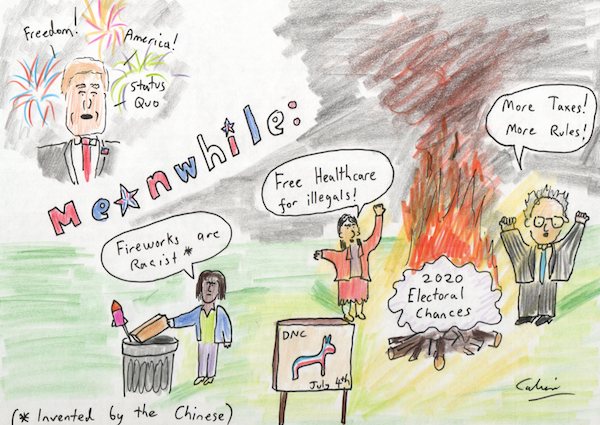 Freedom!
America!
Status
Quo
Meanwhile:
More Taxes!
More Rules!
Free Healthcare
for illegals!
Fireworks are
Racist *
2020
Electoral
Chances
DNC
July 4th
(* Invented by the Chinese)